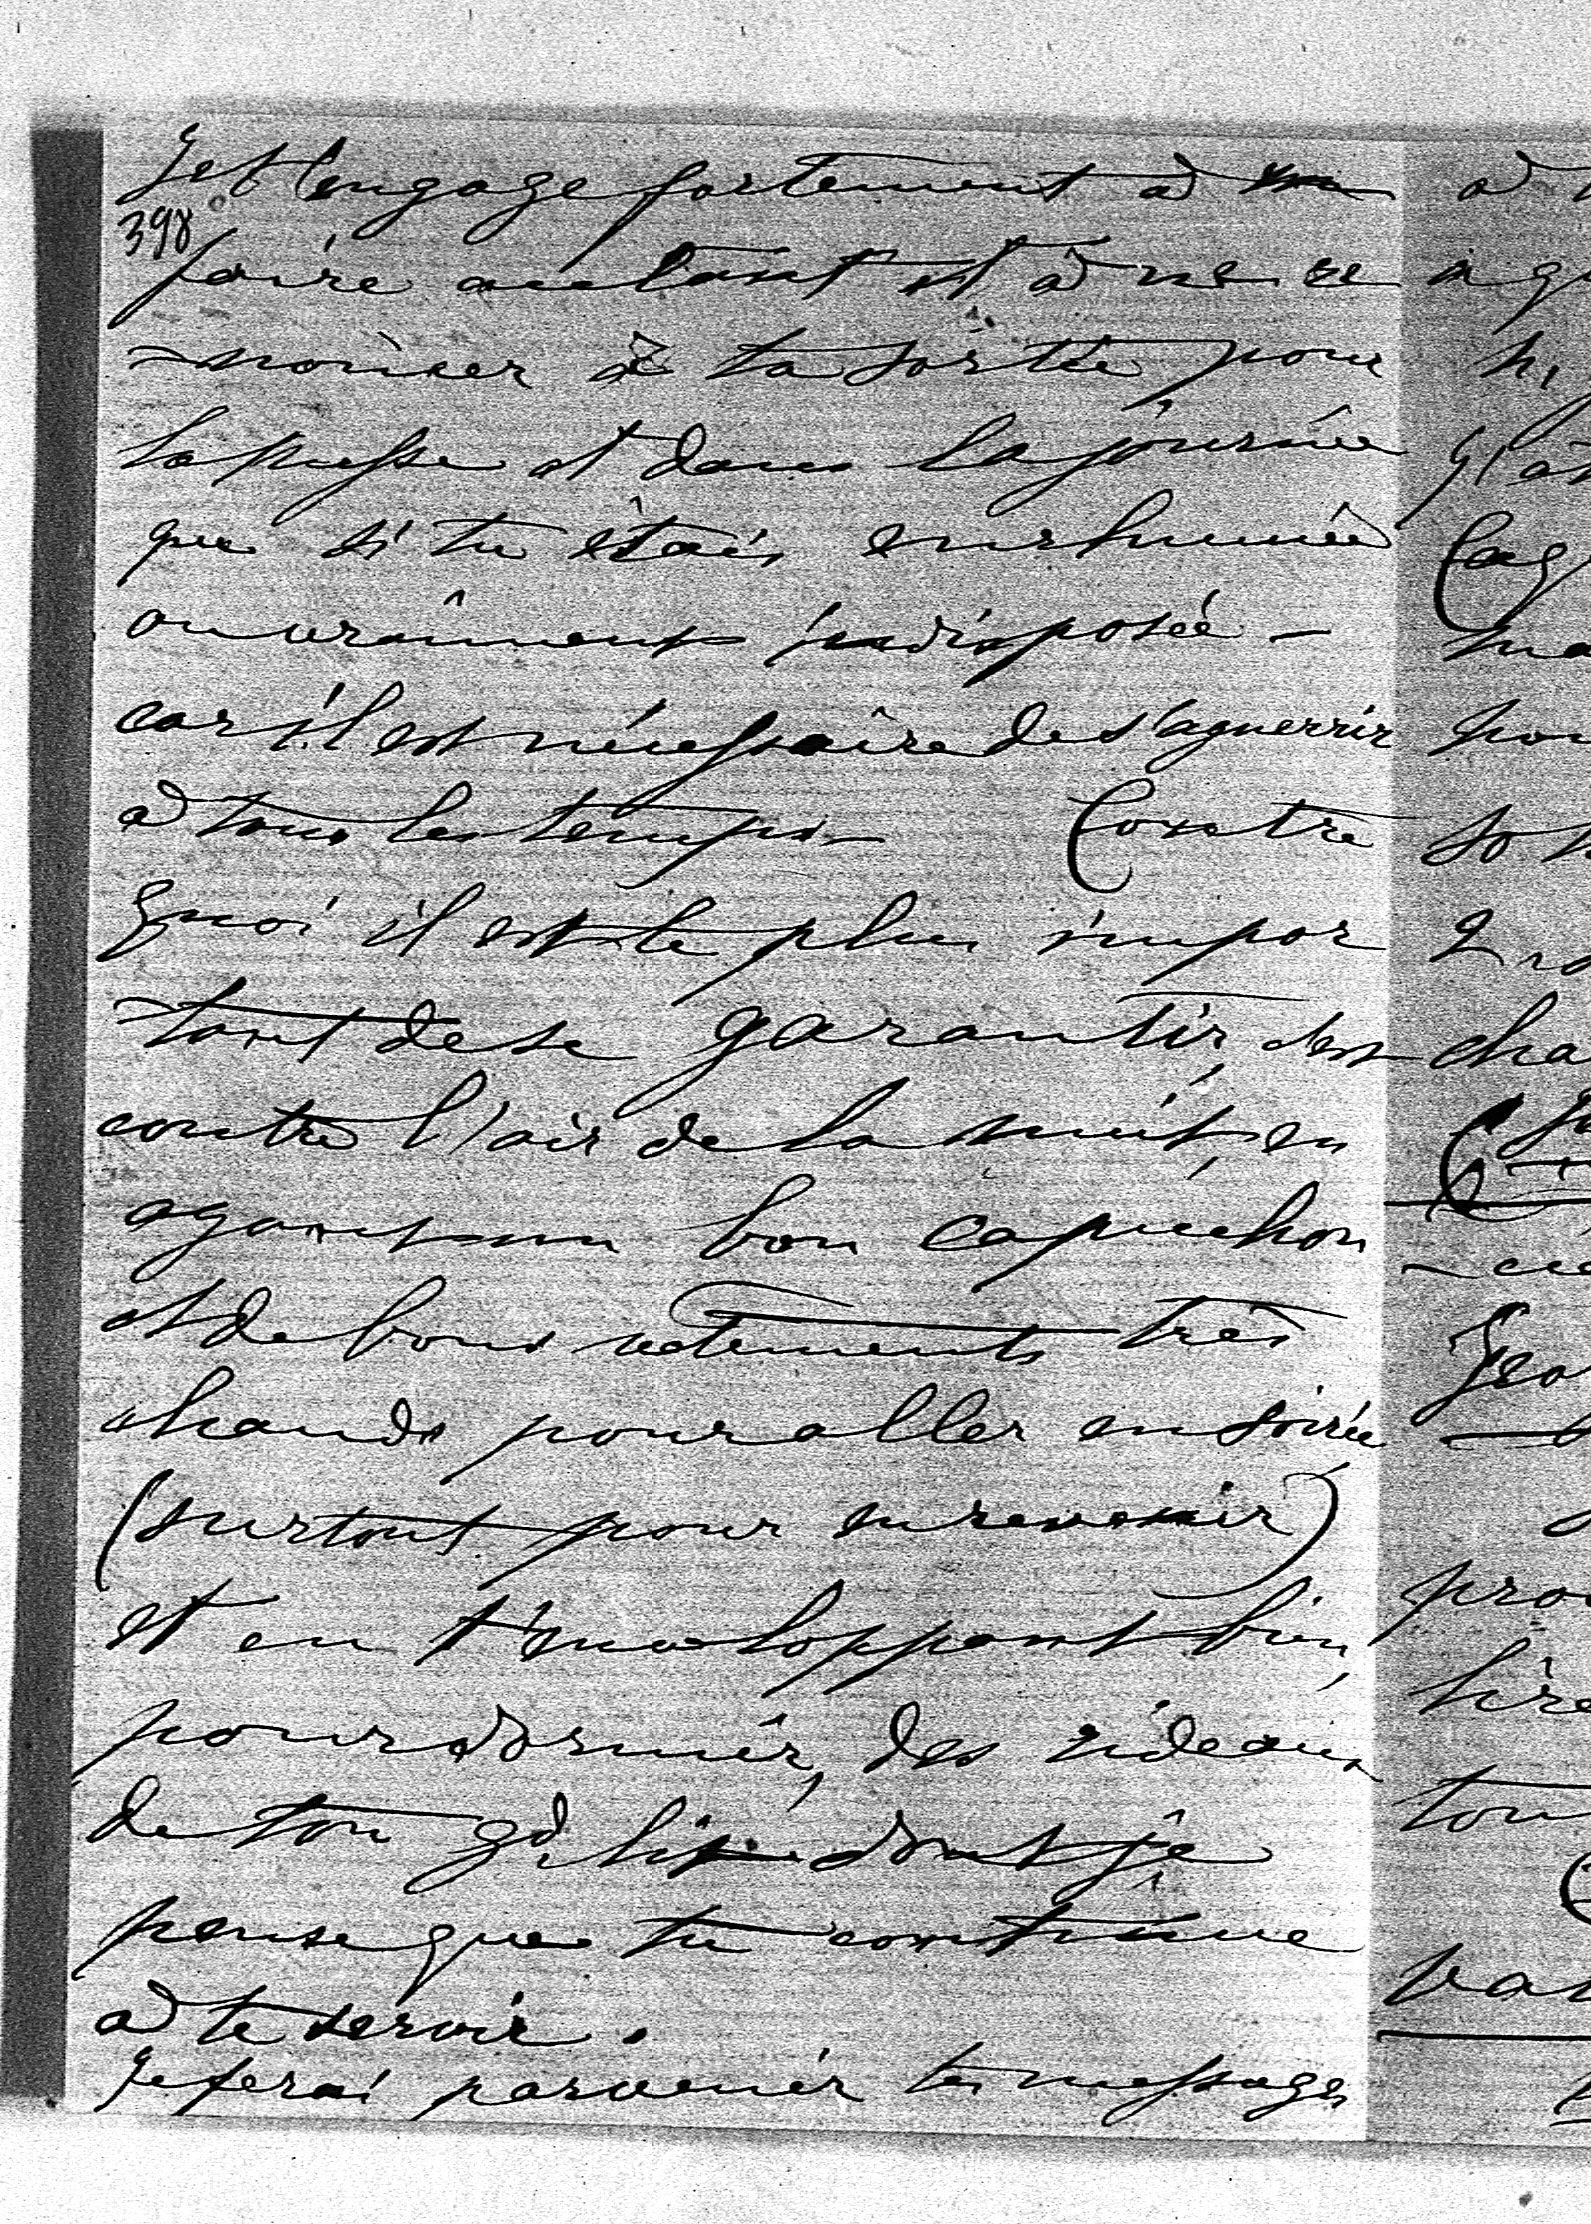 Je t'engage fortement à
398
faire autant et à ne re
noncer à ta sortie pour
la Messe et dans la journée
que si tu étais enrhumée
ou vraiment indisposée –
car il est nécessaire de s'aguerrir
à tous les temps – Contre
quoi il est le plus impor
tant de se garantir, c'est
contre l'air de la nuit, en
ayant un bon capuchon
et de bons vetements très
chauds pour aller en soirée
(surtout pour en revenir)
et en t'enveloppant bien,
pour dormir, des rideaux
de ton gd lit dont je
pense que tu continue
à te servir.
Je ferai parvenir tes messages